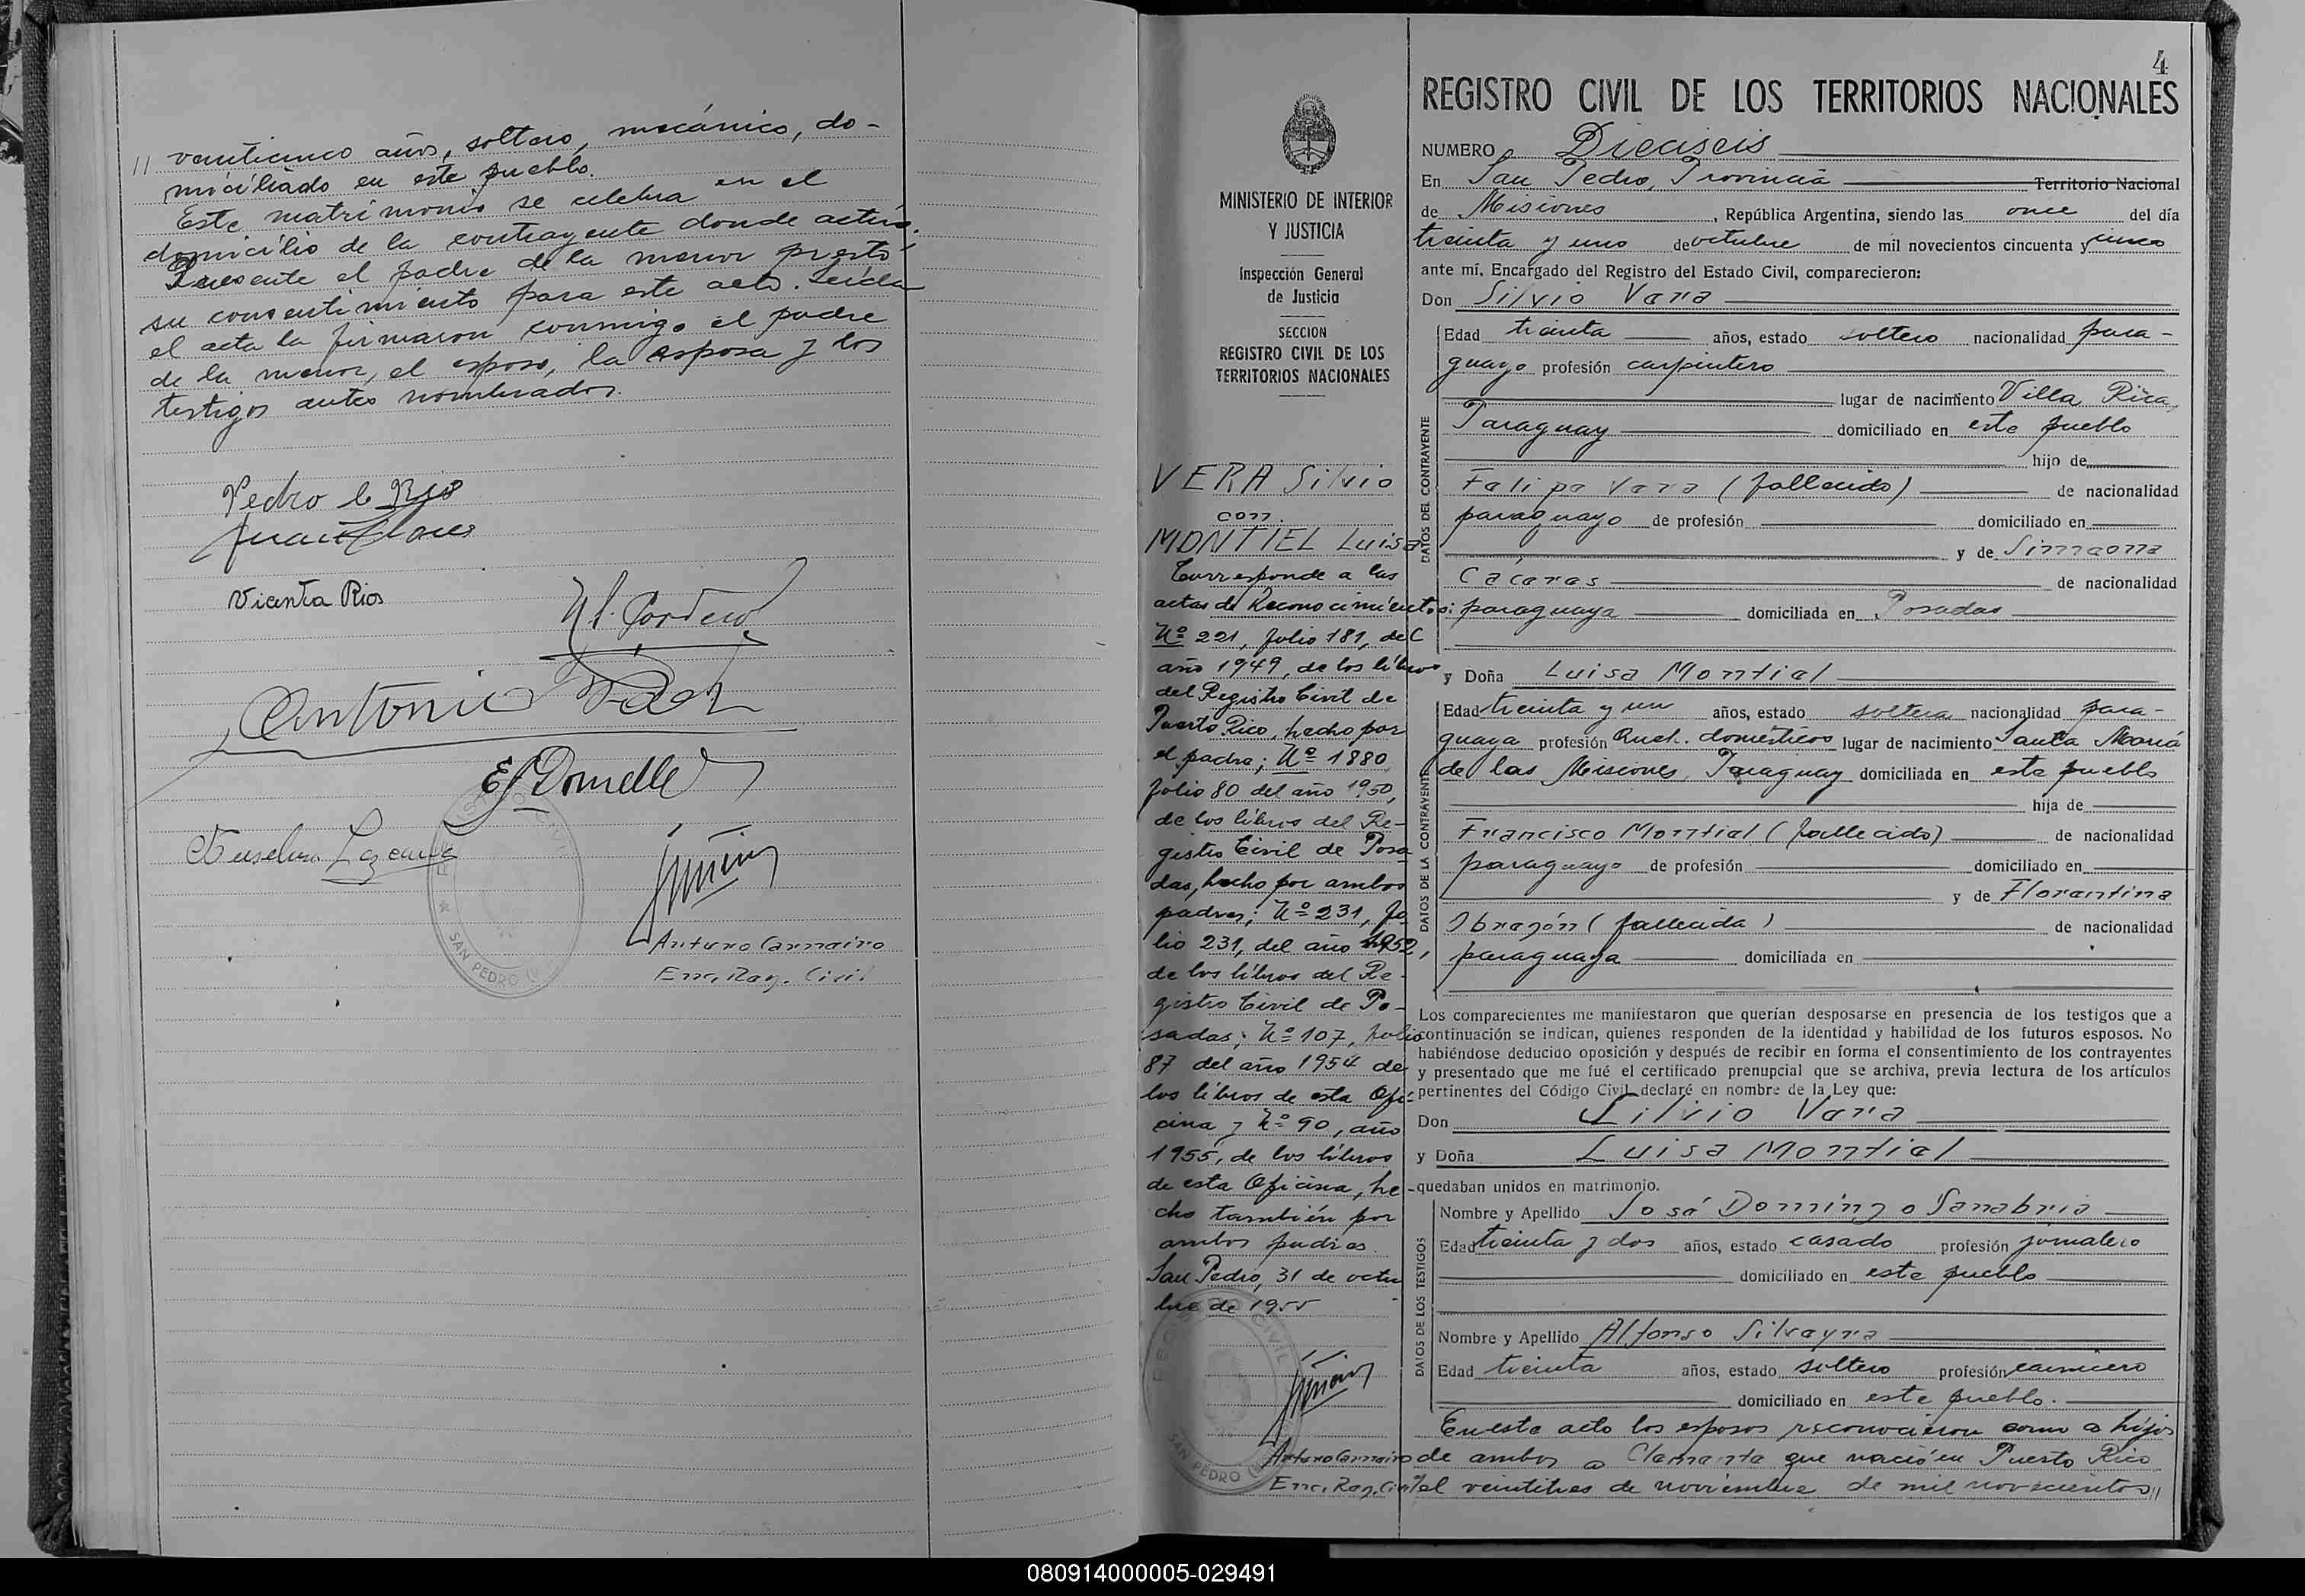 // veinticinco años, soltero, mecánico, do-
miciliado en este pueblo.
Este matrimonio se celebra en el
domicilio de la contrayente donde actúo.
Presente el padre de la menor prestó
su consentimiento para este acto. Leída
el acta la firmaron conmigo el padre
de la menor, el esposo, la esposa y los
testigos antes nombrados.
Pedro
Juan Flores
Vicenta Rios
Cordero
Antonio
Lazcano
REGISTRO CIVIL
SAN PEDRO
Arturo Carneiro
Enc. Reg. Civil
MINISTERIO DE INTERIOR
Y JUSTICIA
Inspección General
de Justicia
SECCION
REGISTRO CIVIL DE LOS
TERRITORIOS NACIONALES
VERA Silvio
con
MONTIEL Luisa
Corresponde a las
actas de Reconocimientos:
Nº 221, folio 181, del
año 1949, de los libros
del Registro Civil de
Puerto Rico, hecho por
el padre; Nº 1880
folio 80 del año 1950,
de los libros del Re-
gistro Civil de Posa
das, hecho por ambos
padres; Nº 231, fo
lio 231, del año 1952,
de los libros del Re-
gistro Civil de Po-
sadas; Nº 107, folio
87 del año 1954 de
los libros de esta Ofi-
cina y Nº 90, año
1955, de los libros
de esta Oficina, he-
cho también por
ambos padres.
San Pedro, 31 de octu
bre de 1955
REGISTRO CIVIL
SAN PEDRO
Arturo Carneiro
Enc. Reg. Civil
4
REGISTRO CIVIL DE LOS TERRITORIOS NACIONALES
NUMERO Dieciseis
En San Pedro, Provincia Territorio Nacional
de Misiones, República Argentina, siendo las once del día
treinta y uno de octubre de mil novecientos cincuenta y cinco
ante mí, Encargado del Registro del Estado Civil, comparecieron:
Don Silvio Vera
DATOS DEL CONTRAYENTE
Edad treinta años, estado soltero nacionalidad para-
guayo profesión carpintero
lugar de nacimiento Villa Rica,
Paraguay domiciliado en este pueblo
hijo de
Felipe Vera (fallecido) de nacionalidad
paraguayo de profesión domiciliado en
y de Simeona
Cáceres de nacionalidad
paraguaya domiciliada en Posadas
y Doña Luisa Montiel
DATOS DE LA CONTRAYENTE
Edad treinta y un años, estado soltera nacionalidad para-
guaya profesión Queh. domésticos lugar de nacimiento Santa María
de las Misiones, Paraguay domiciliada en este pueblo
hija de
Francisco Montiel (fallecido) de nacionalidad
paraguayo de profesión domiciliado en
y de Florentina
Obregón (fallecida) de nacionalidad
paraguaya domiciliada en
Los comparecientes me manifestaron que querían desposarse en presencia de los testigos que a
continuación se indican, quienes responden de la identidad y habilidad de los futuros esposos. No
habiéndose deducido oposición y después de recibir en forma el consentimiento de los contrayentes
y presentado que me fué el certificado prenupcial que se archiva, previa lectura de los artículos
pertinentes del Código Civil, declaré en nombre de la Ley que:
Don Silvio Vera
y Doña Luisa Montiel
quedaban unidos en matrimonio.
DATOS DE LOS TESTIGOS
Nombre y Apellido José Domingo Sanabria
Edad treinta y dos años, estado casado profesión jornalero
domiciliado en este pueblo
Nombre y Apellido Alfonso Silveyra
Edad treinta años, estado soltero profesión carnicero
domiciliado en este pueblo.
En este acto los esposos reconocieron como a hijos
de ambos a Clementa que nació en Puerto Rico
el veintitres de noviembre de mil novecientos//
080914000005-029491